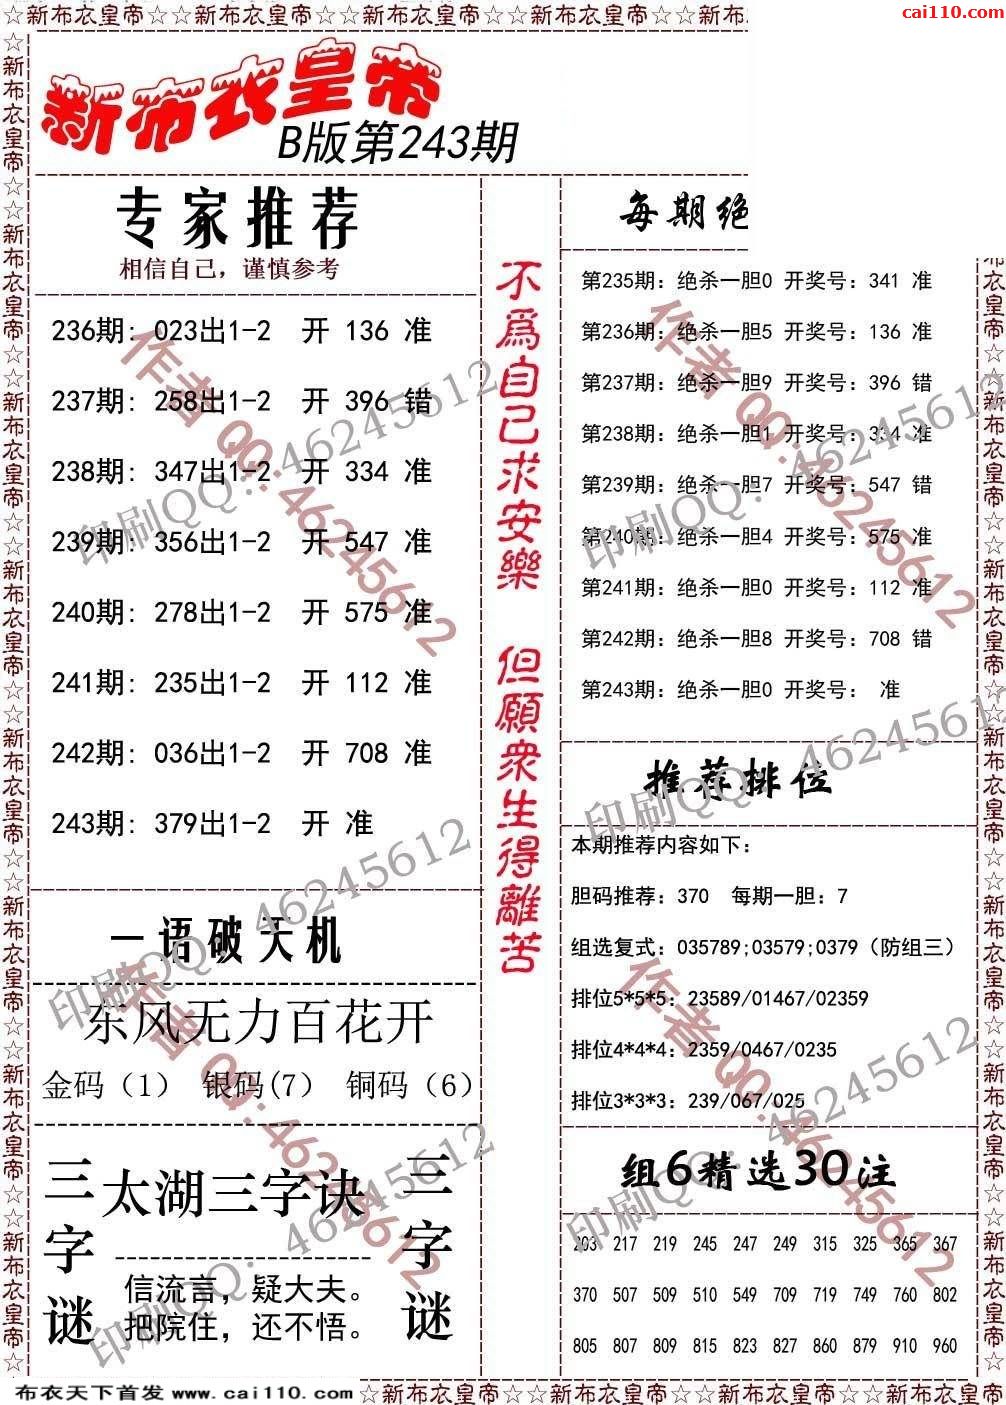 ☆新布衣皇帝☆☆新布衣皇帝☆☆新布衣皇帝☆☆新布衣皇帝☆☆新布
cai110.com
新布衣皇帝
B版第243期
专家推荐
相信自己，谨慎参考
236期：023出1-2 开 136 准
237期：258出1-2 开 396 错
238期：347出1-2 开 334 准
239期：356出1-2 开 547 准
240期：278出1-2 开 575 准
241期：235出1-2 开 112 准
242期：036出1-2 开 708 准
243期：379出1-2 开 准
一语破天机
东风无力百花开
金码（1） 银码(7） 铜码（6）
三字谜
太湖三字诀
信流言，疑大夫。
把院住，还不悟。
三字谜
不爲自己求安樂 但願衆生得離苦
每期绝
第235期：绝杀一胆0 开奖号：341 准
第236期：绝杀一胆5 开奖号：136 准
第237期：绝杀一胆9 开奖号：396 错
第238期：绝杀一胆1 开奖号：334 准
第239期：绝杀一胆7 开奖号：547 错
第240期：绝杀一胆4 开奖号：575 准
第241期：绝杀一胆0 开奖号：112 准
第242期：绝杀一胆8 开奖号：708 错
第243期：绝杀一胆0 开奖号： 准
推荐排位
本期推荐内容如下：
胆码推荐：370 每期一胆：7
组选复式：035789;03579;0379（防组三）
排位5*5*5：23589/01467/02359
排位4*4*4：2359/0467/0235
排位3*3*3：239/067/025
组6精选30注
203 217 219 245 247 249 315 325 365 367
370 507 509 510 549 709 719 749 760 802
805 807 809 815 823 827 860 879 910 960
作者 QQ:46245612
印刷QQ：46245612
作者 QQ:46245612
印刷QQ：46245612
印刷QQ：46245612
印刷QQ：46245612
作者 QQ:46245612
印刷QQ：46245612
作者 QQ:46245612
印刷QQ：46245612
☆新布衣皇帝☆☆新布衣皇帝☆☆新布衣皇帝☆☆新布衣皇帝☆☆新布衣皇帝☆☆新布衣皇帝☆☆新布衣皇帝☆☆新布衣皇帝☆
衣皇帝☆☆新布衣皇帝☆☆新布衣皇帝☆☆新布衣皇帝☆☆新布衣皇帝☆☆新布衣皇帝☆☆新布衣皇帝☆
布衣天下首发 www.cai110.com
☆新布衣皇帝☆☆新布衣皇帝☆☆新布衣皇帝☆☆新布衣皇帝☆